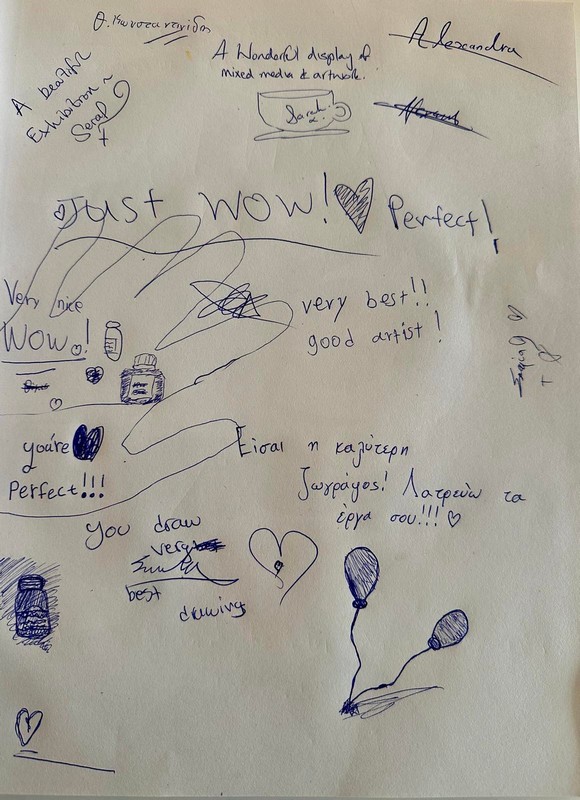 Θ. Κωνσταντινίδης
Alexandra
A Wonderful display of
mixed media & artwork.
A beatiful
Exhibition ~
Sarah
Just WOW!
Perfect!
Very nice
WOW!
very best!!
good artist!
you're
Perfect!!!
Είσαι η καλύτερη
ζωγράφος! Λατρεύω τα
έργα σου!!!
you draw
very
best
drawing